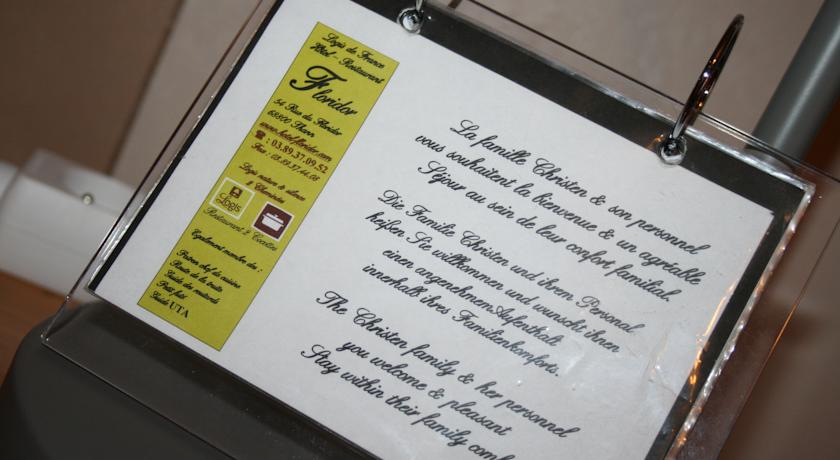 Logis de France
Hôtel - Restaurant
Floridor
54 Rue du Floridor
68800 Thann
www.hotel-floridor.com
☎ : 03.89.37.09.52
Fax :
Logis nature & silence
2 Cheminées
Logis
Restaurant 2 Cocottes
Egalement membre des :
Poison chef de cuisine
Route de la truite
Guide des motards
Petit futé
Guide UTA
La famille Christen & son personnel
vous souhaitent la bienvenue & un agréable
Séjour au sein de leur confort familial.
Die Familie Christen und ihrem Personal
heißen Sie willkommen und wunscht ihnen
einen angenehmen Aufenthalt
innerhalb ihres Familienkomforts.
The Christen family & her personnel
you welcome & pleasant
Stay within their family